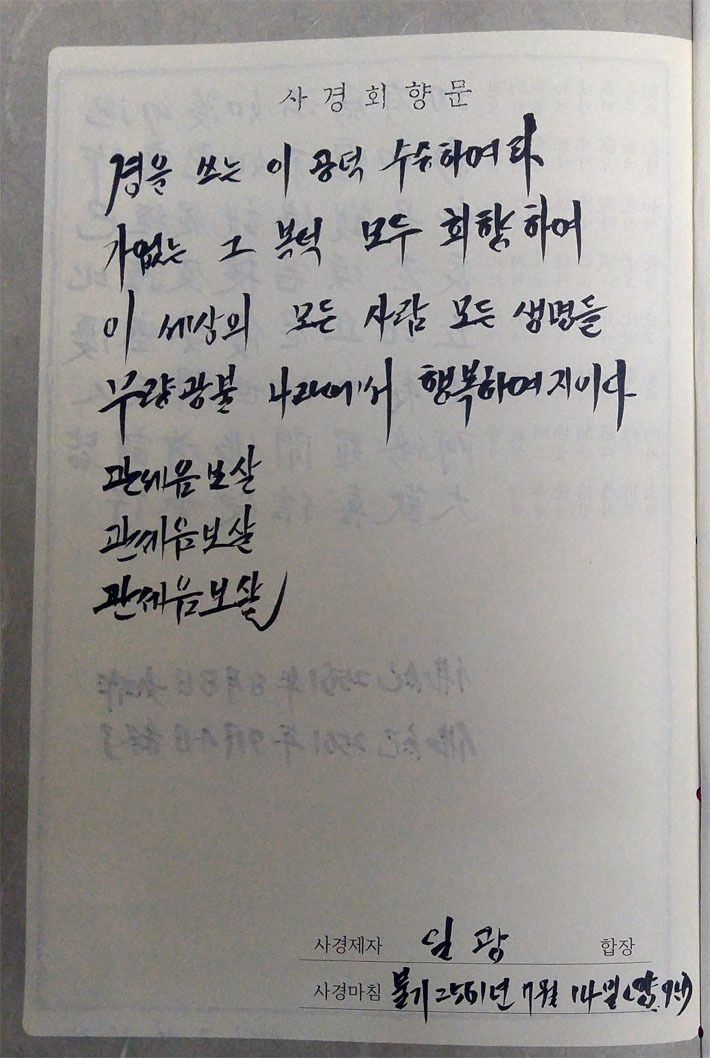 사경회향문
경을 쓰는 이 공덕 수승하여라
가없는 그 복덕 모두 회향하여
이 세상의 모든 사람 모든 생명들
무량광불 나라에서 행복하여지이다
관세음보살
관세음보살
관세음보살
사경제자 일광 합장
사경마침 불기 2561년 7월 14일